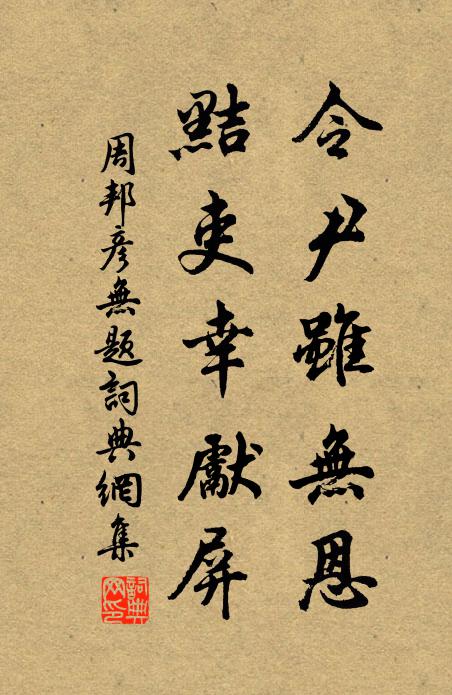 令尹雖無恩
黠吏幸獻屏
周邦彥無題詞典網集
詞典網印